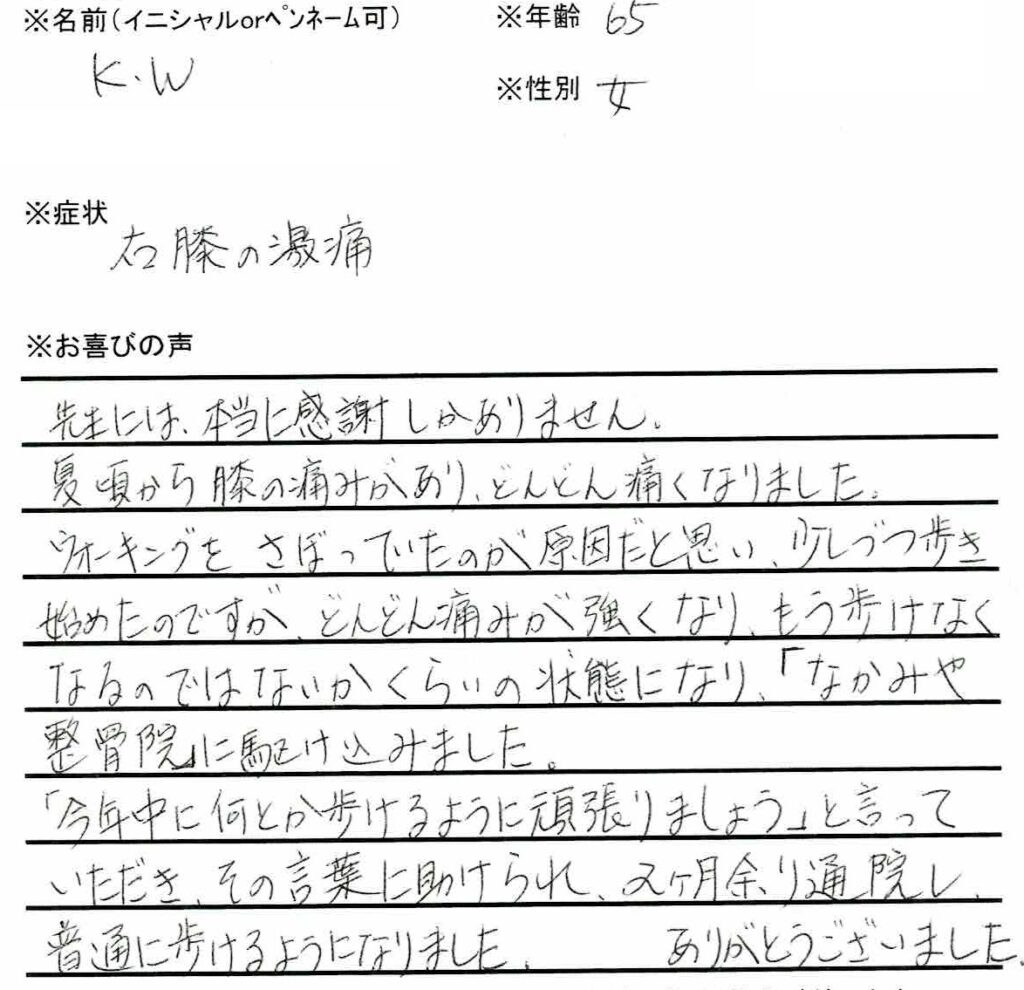 ※名前(イニシャルorペンネーム可)
※年齢 65
K.W
※性別 女
※症状
右膝の激痛
※お喜びの声
先生には、本当に感謝しかありません。
夏頃から膝の痛みがあり、どんどん痛くなりました。
ウォーキングをさぼっていたのが原因だと思い、少しづつ歩き
始めたのですが、どんどん痛みが強くなり、もう歩けなく
なるのではないかくらいの状態になり、「なかみや
整骨院」に駆け込みました。
「今年中に何とか歩けるように頑張りましょう」と言って
いただき、その言葉に助けられ、2ヶ月余り通院し、
普通に歩けるようになりました。 ありがとうございました。